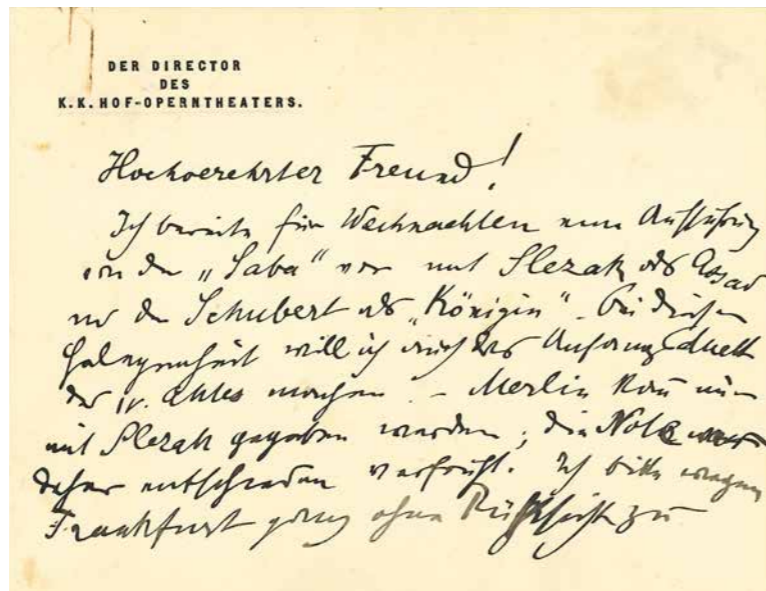 DER DIRECTOR
DES
K.K. HOF-OPERNTHEATERS.
Hochverehrter Freund!
Ich bereite für Weihnachten eine Aufführung
von der „Saba“ vor mit Slezak als Assad
und der Schubert als „Königin“ – Bei dieser
Gelegenheit will ich auch das Anfangsduett
des IV. Aktes machen. – Merlin kann nur
mit Slezak gegeben werden; die Notiz war
daher entschieden verfrüht. Ich bitte wegen
Frankfurt ganz ohne Rücksicht zu